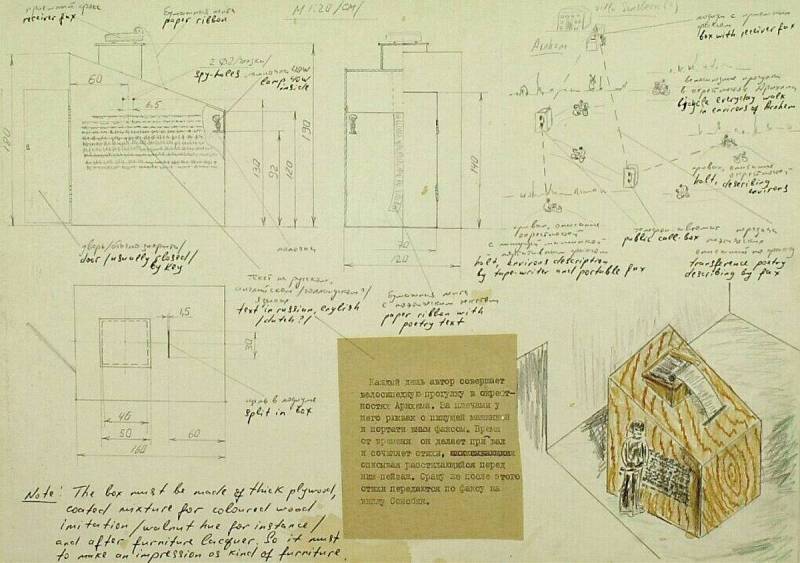 приёмный факс
receiver fax
бумажная лента
paper ribbon
М 1:20 /СМ/
spy-holes
лампочка 40W
lamp 40W
inside
60
6,5
180
130
92
120
190
140
70
120
дверь /обычно закрыта/
door /usually closed/
by key
текст на русском,
английском /голландском?/
языках
text in russian, english
/dutch?/
бумажная лента
с поэтическим текстом
paper ribbon with
poetry text
Arnhem
with Sonsbeek
box with receiver fax
bicycle everyday walk
in environs of Arnhem
halt, describing
environs
public call-box
transference poetry
describing by fax
halt, environs description
by tape-writer and portable fax
1,5
30
46
50
60
160
split in box
Note: The box must be made of thick plywood,
coated mixture for coloured wood
imitation /walnut hue for instance/
and after furniture lacquer. So it must
to make an impression as kind of furniture.
Каждый день автор совершает
велосипедную прогулку в окрест-
ностях Арнхема. За плечами у
него рюкзак с пишущей машинкой
и портативным факсом. Время
от времени он делает привал
и сочиняет стихи,
описывая расстилающийся перед
ним пейзаж. Сразу же после этого
стихи передаются по факсу на
виллу Сонсбек.